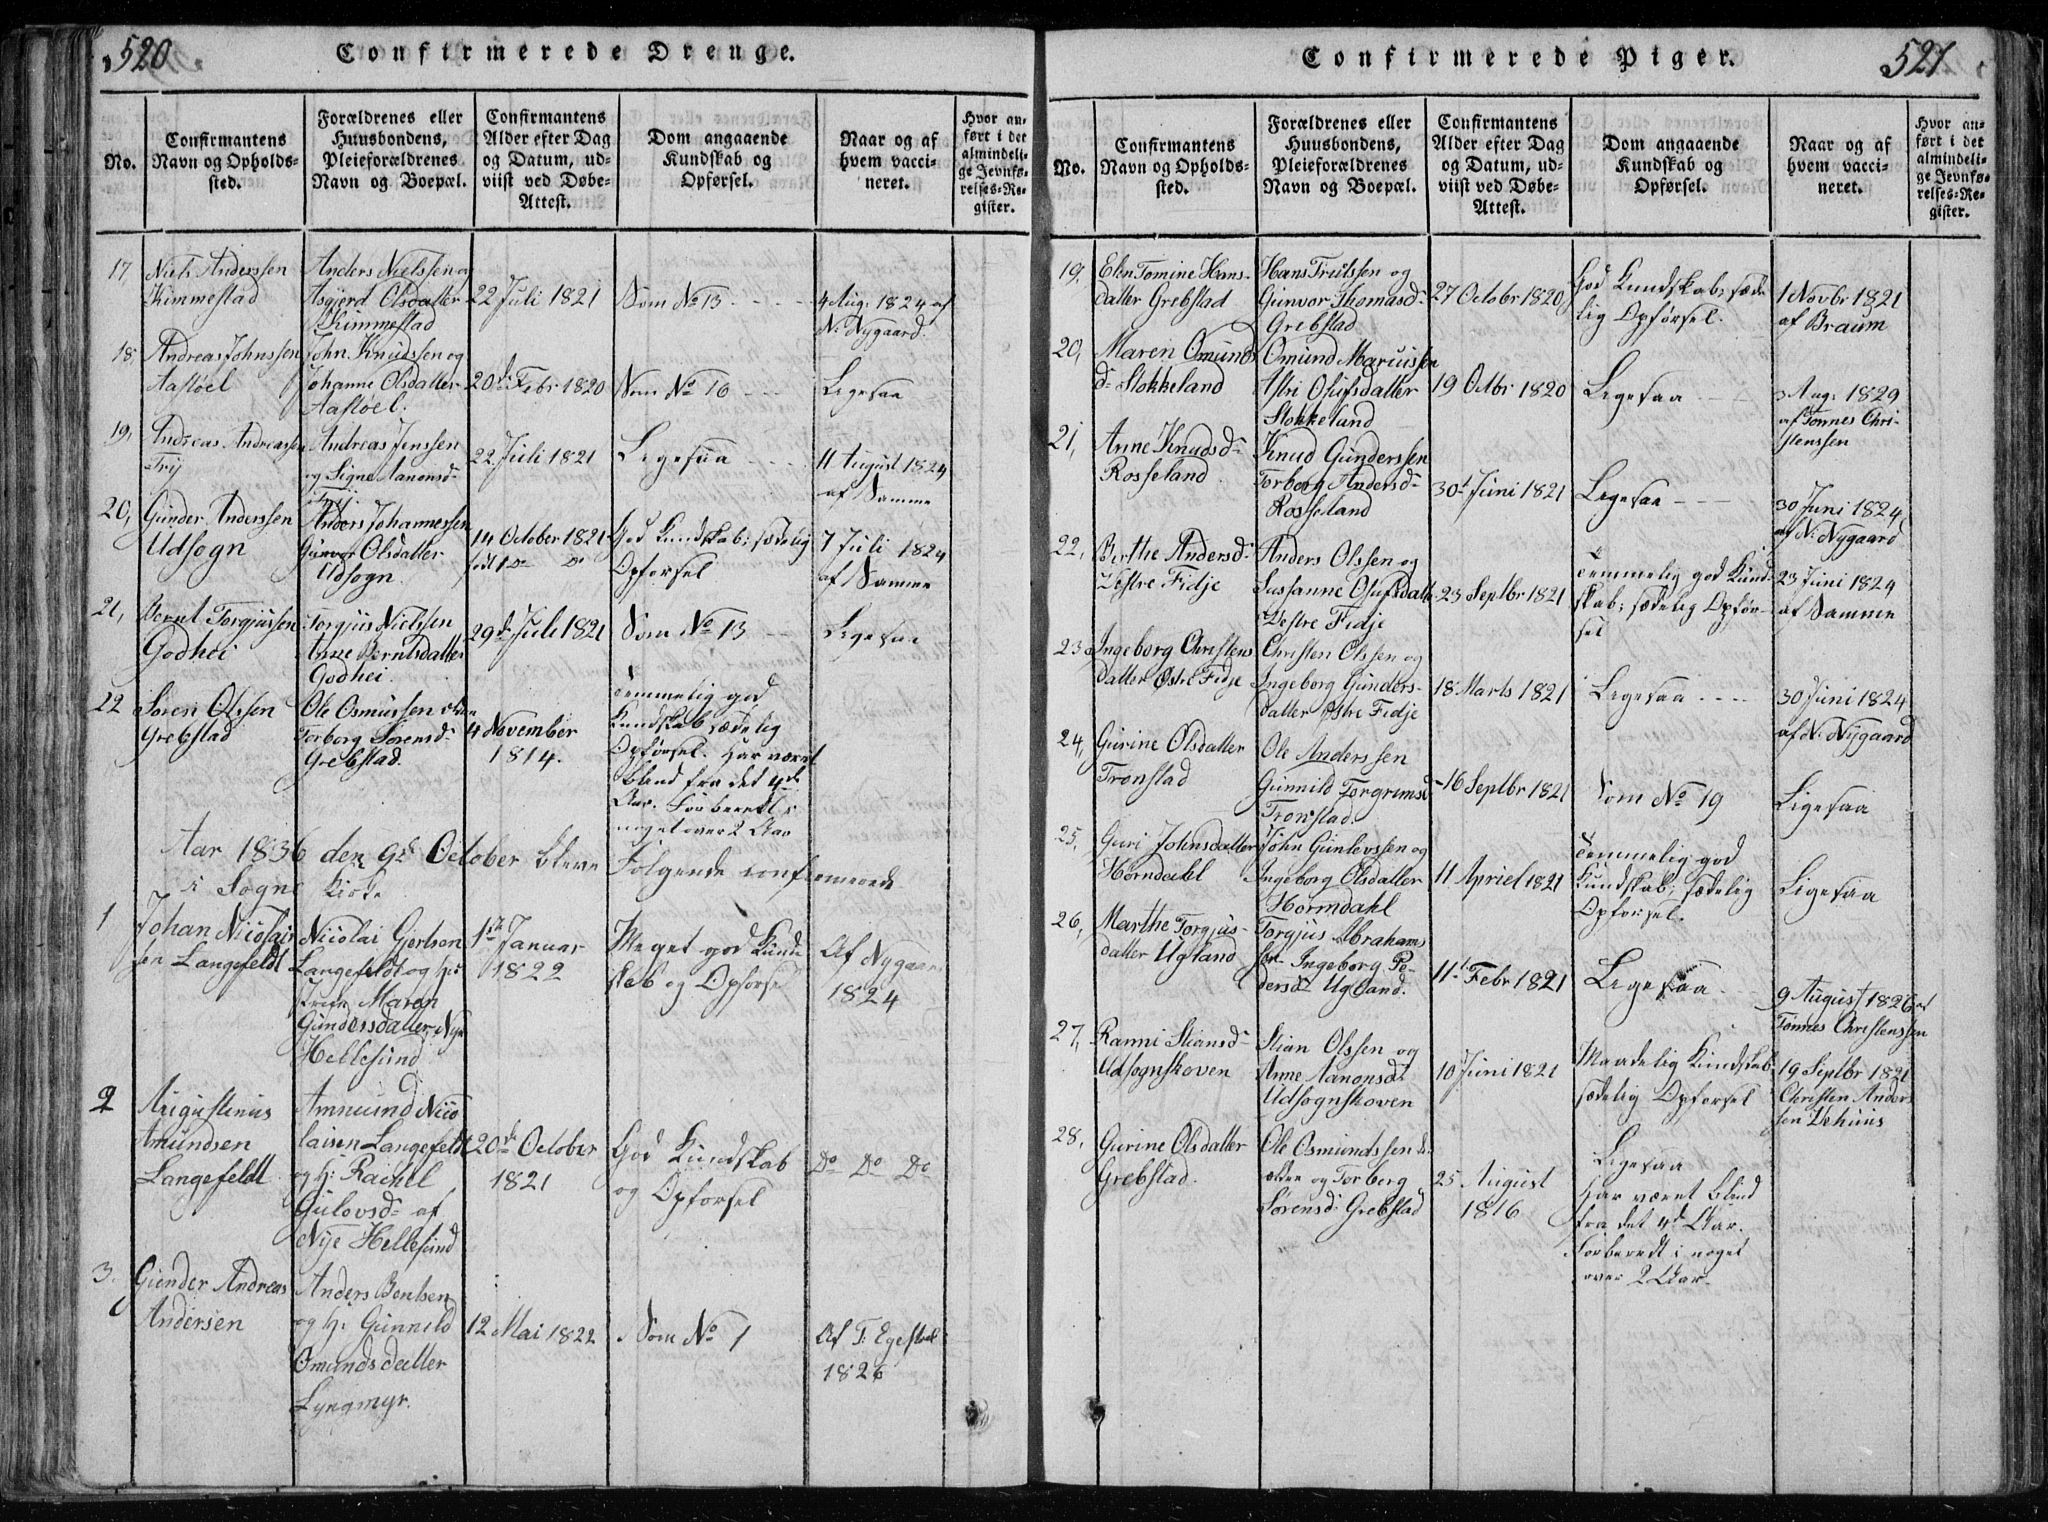 520
Confirmerede Drenge.
No.
Confirmantens
Navn og Opholds-
sted.
Forældrenes eller
Huusbondens,
Pleieforældrenes
Navn og Boepæl.
Confirmantens
Alder efter Dag
og Datum, ud-
viist ved Døbe-
Attest.
Dom angaaende
Kundskab og
Opførsel.
Naar og af
hvem vacci-
neret.
Hvor an-
ført i det
almindeli-
ge Jevnfø-
relses-Re-
gister.
17,
Niels Anderssen
Kimmestad
Anders Nielssen og
Asgjerd Olsdatter
Kimmestad
22 Juli 1821
Som No 13
4 Aug. 1824 af
N. Nygaard
18,
Andreas Johnssen
Aastøel
John Knudssen og
Johanne Olsdatter
Aastøel.
20de Febr 1820
Som No 16
Ligesaa
19,
Andreas Andreassen
Trij
Andreas Jenssen
og Signe Aanonsd-
Trij.
22 Juli 1821
Ligesaa
11 August 1824
af Samme
20,
Gunder Anderssen
Udsogn
Anders Johannessen
Gunvor Olsdatter
Udsogn.
14 October 1821
født 1 Do Do
God Kundskab; sædelig
Opførsel
7 Juli 1824
af Samme
21,
Bernt Torgjussen
Godhei
Torgjus Nielssen
Anne Berntsdatter
Godhei.
29de Juli 1821
Som No 13
Ligesaa
22
Søren Olssen
Grebstad
Ole Osmussen
Torborg Sørensd-
Grebstad.
4 November
1814.
Temmelig god
Kundskab sædelig
Opførsel. Har været
blind fra det 4de
Aar. Forberedt i
noget over 2 Aar
Aar 1836 den 9de October bleve Følgende confirmerede
i Sogne Kirke
1
Johan Nicolai
sen Langefeldt
Nicolai Gjertsen
Langefeldt og H:
Maren
Gundersdatter Nye
Hellesund
1ste Januar
1822
Meget god Kund
skab og Opførsel
Af Nygaard
1824
2
Augustinius
Amundsen
Langefeldt
Ammund Nico
laisen Langefeldt
og H: Rachel
Gulovsd- af
Nÿe Hellesund
20de October
1821
God Kundskab
og Opførsel
Do Do Do
3.
Gunder Andreas
Andersen
Anders Bentsen
og H: Gunnild
Omundsdatter
Lyngmyr.
12 Mai 1822
Som No 1
Af T. Egestad
1826
521
Confirmerede Piger.
No.
Confirmantens
Navn og Opholds-
sted.
Forældrenes eller
Huusbondens,
Pleieforældrenes
Navn og Boepæl.
Confirmantens
Alder efter Dag
og Datum, ud-
viist ved Døbe-
Attest.
Dom angaaende
Kundskab og
Opførsel.
Naar og af
hvem vacci-
neret.
Hvor an-
ført i det
almindeli-
ge Jevnfø-
relses-Re-
gister.
19,
Elen Tomine Hans-
datter Grebstad
Hans Trulssen og
Gunvor Thomasd-
Grebstad
27 Octobr 1820
God Kundskab; sæde
lig Opførsel.
1 Novbr 1821
af Braum
20,
Maren Omunds
d- Stokkeland
Omund Marcussen
Astri Olufsdatter
Stokkeland
19 Octbr 1820
Ligesaa
3 Aug. 1829
af Tønnes Chri-
stenssen
21,
Anne Knudsd-
Rosseland
Knud Gunderssen
Torborg Andersd-
Rosseland
30t Juni 1821
Ligesaa
30 Juni 1824
af N. Nygaard
22,
Birthe Andersd-
Vestre Fidje
Anders Olssen og
Sussanne Olufsdatte
Vestre Fidje
23 Septbr 1821
Temmelig god Kund-
skab; sædelig Opfør-
sel
23 Juni 1824
af Samme
23
Ingeborg Christens
datter Østre Fidje
Christen Olssen og
Ingeborg Gunders-
datter Østre Fidje
18 Marts 1821
Ligesaa
30 Juni 1824
af N. Nygaard
24,
Gurine Olsdatter
Tronstad
Ole Anderssen
Gunnild Torgrimsd
Tronstad.
16 Septbr 1821
Som No 19
Ligesaa
25,
Guri Johnsdatter
Horndahl
John Gunlevssen og
Ingeborg Olsdatter
Horndahl
11 Apriel 1821
Temmelig god
Kundskab; sædelig
Opførsel.
Ligesaa
26,
Marthe Torgjus-
datter Ugland
Torgjus Abrahams
sen Ingeborg Pe-
dersd- Ugland.
11t Febr 1821
Ligesaa
9 August 1826 af
Tønnes Christenssen
27,
Ranni Stiansd-
Udsognskoven
Stian Olssen og
Anne Aanonsd-
Udsognskoven
10 Juni 1821
Maadelig Kundskab
sædelig Opførsel
19 Septbr 1821
Christen Anders
sen Vehuus
28,
Gurine Olsdatter
Grebstad.
Ole Osmundssen d.
ældre og Torborg
Sørensd. Grebstad
25 August
1816
Ligesaa
Har været blind
fra det 4de Aar.
Forberedt i noget
over 2 Aar